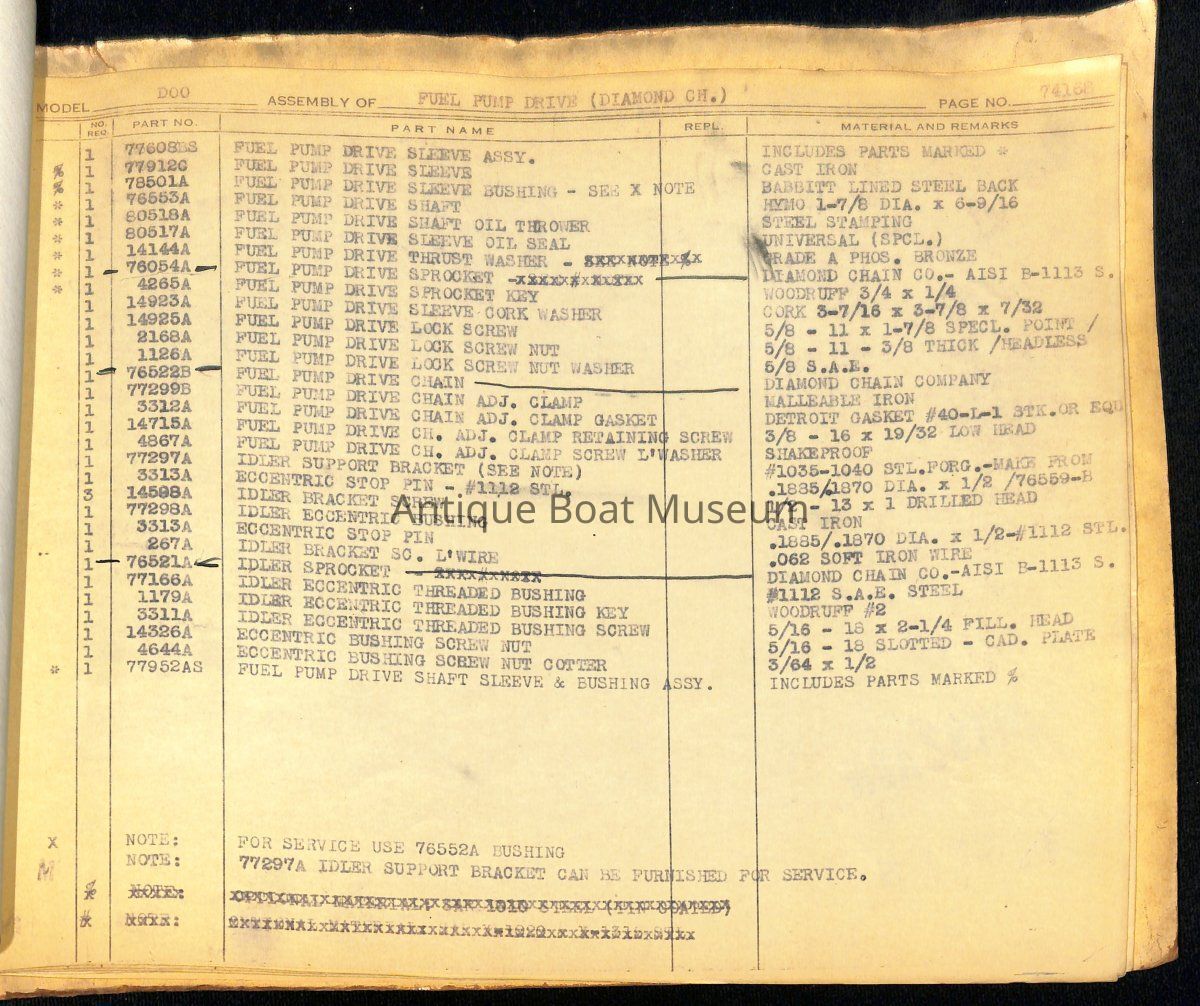 MODEL DOO ASSEMBLY OF FUEL PUMP DRIVE (DIAMOND CH.) PAGE NO.
NO. REQ. PART NO. PART NAME REPL. MATERIAL AND REMARKS
1 77608BS FUEL PUMP DRIVE SLEEVE ASSY. INCLUDES PARTS MARKED *
% 1 77912C FUEL PUMP DRIVE SLEEVE CAST IRON
% 1 78501A FUEL PUMP DRIVE SLEEVE BUSHING - SEE X NOTE BABBITT LINED STEEL BACK
* 1 76553A FUEL PUMP DRIVE SHAFT HYMO 1-7/8 DIA. x 6-9/16
* 1 80518A FUEL PUMP DRIVE SHAFT OIL THROWER STEEL STAMPING
* 1 80517A FUEL PUMP DRIVE SLEEVE OIL SEAL UNIVERSAL (SPCL.)
* 1 14144A FUEL PUMP DRIVE THRUST WASHER - GRADE A PHOS. BRONZE
* 1 76054A FUEL PUMP DRIVE SPROCKET - DIAMOND CHAIN CO.- AISI B-1113 S.
* 1 4265A FUEL PUMP DRIVE SPROCKET KEY WOODRUFF 3/4 x 1/4
1 14923A FUEL PUMP DRIVE SLEEVE CORK WASHER CORK 3-7/16 x 3-7/8 x 7/32
1 14925A FUEL PUMP DRIVE LOCK SCREW 5/8 - 11 x 1-7/8 SPECL. POINT /
1 2168A FUEL PUMP DRIVE LOCK SCREW NUT 5/8 - 11 - 3/8 THICK /HEADLESS
1 1126A FUEL PUMP DRIVE LOCK SCREW NUT WASHER 5/8 S.A.E.
1 76522B FUEL PUMP DRIVE CHAIN DIAMOND CHAIN COMPANY
1 77299B FUEL PUMP DRIVE CHAIN ADJ. CLAMP MALLEABLE IRON
1 3312A FUEL PUMP DRIVE CHAIN ADJ. CLAMP GASKET DETROIT GASKET #40-L-1 STK.OR EQU
1 14715A FUEL PUMP DRIVE CH. ADJ. CLAMP RETAINING SCREW 3/8 - 16 x 19/32 LOW HEAD
1 4867A FUEL PUMP DRIVE CH. ADJ. CLAMP SCREW L'WASHER SHAKEPROOF
1 77297A IDLER SUPPORT BRACKET (SEE NOTE) #1035-1040 STL.FORG.-MAKE FROM
1 3313A ECCENTRIC STOP PIN - #1112 STL. .1885/.1870 DIA. x 1/2 /76559-B
3 14598A IDLER BRACKET SCREW - 13 x 1 DRILLED HEAD
1 77298A IDLER ECCENTRIC BUSHING CAST IRON
1 3313A ECCENTRIC STOP PIN .1885/.1870 DIA. x 1/2-#1112 STL.
1 267A IDLER BRACKET SC. L'WIRE .062 SOFT IRON WIRE
1 76521A IDLER SPROCKET - DIAMOND CHAIN CO.-AISI B-1113 S.
1 77166A IDLER ECCENTRIC THREADED BUSHING #1112 S.A.E. STEEL
1 1179A IDLER ECCENTRIC THREADED BUSHING KEY WOODRUFF #2
1 3311A IDLER ECCENTRIC THREADED BUSHING SCREW 5/16 - 18 x 2-1/4 FILL. HEAD
1 14326A ECCENTRIC BUSHING SCREW NUT 5/16 - 18 SLOTTED - CAD. PLATE
1 4644A ECCENTRIC BUSHING SCREW NUT COTTER 3/64 x 1/2
* 1 77952AS FUEL PUMP DRIVE SHAFT SLEEVE & BUSHING ASSY. INCLUDES PARTS MARKED %
Antique Boat Museum
X NOTE: FOR SERVICE USE 76552A BUSHING
M NOTE: 77297A IDLER SUPPORT BRACKET CAN BE FURNISHED FOR SERVICE.
% NOTE:
# NOTE: